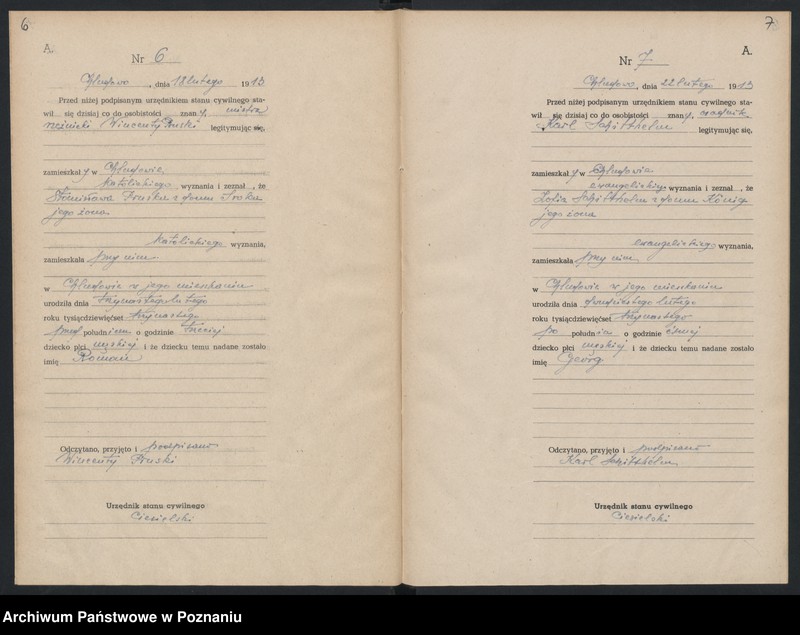 6
A.
Nr 6
Chludowo, dnia 18 lutego 1913
Przed niżej podpisanym urzędnikiem stanu cywilnego sta-
wił się dzisiaj co do osobistości znany, mistrz
rzeźnicki Wincenty Pruski legitymując się,
zamieszkały w Chludowie,
katolickiego wyznania i zeznał, że
Stanisława Pruska z domu
jego żona
katolickiego wyznania,
zamieszkała przy nim
w Chludowie w jego mieszkaniu
urodziła dnia trzynastego lutego
roku tysiącdziewięćset trzynastego
przed południem o godzinie trzeciej
dziecko płci męskiej i że dziecku temu nadane zostało
imię Roman
Odczytano, przyjęto i podpisano
Wincenty Pruski
Urzędnik stanu cywilnego
Ciesielski
7
A.
Nr 7
Chludowo, dnia 22 lutego 1913
Przed niżej podpisanym urzędnikiem stanu cywilnego sta-
wił się dzisiaj co do osobistości znany,
Karl legitymując się,
zamieszkały w Chludowie
ewangelickiego wyznania i zeznał, że
Zofia z domu König
jego żona
ewangelickiego wyznania,
zamieszkała przy nim
w Chludowie w jego mieszkaniu
urodziła dnia dwudziestego lutego
roku tysiącdziewięćset trzynastego
po południu o godzinie ósmej
dziecko płci męskiej i że dziecku temu nadane zostało
imię Georg
Odczytano, przyjęto i podpisano
Karl
Urzędnik stanu cywilnego
Ciesielski
Archiwum Państwowe w Poznaniu